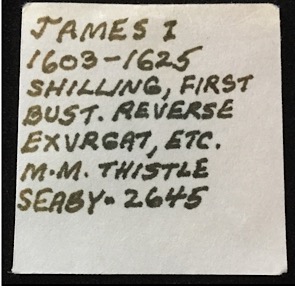 JAMES I
1603-1625
SHILLING, FIRST
BUST. REVERSE
EXVRGAT, ETC.
M.M. THISTLE
SEABY- 2645